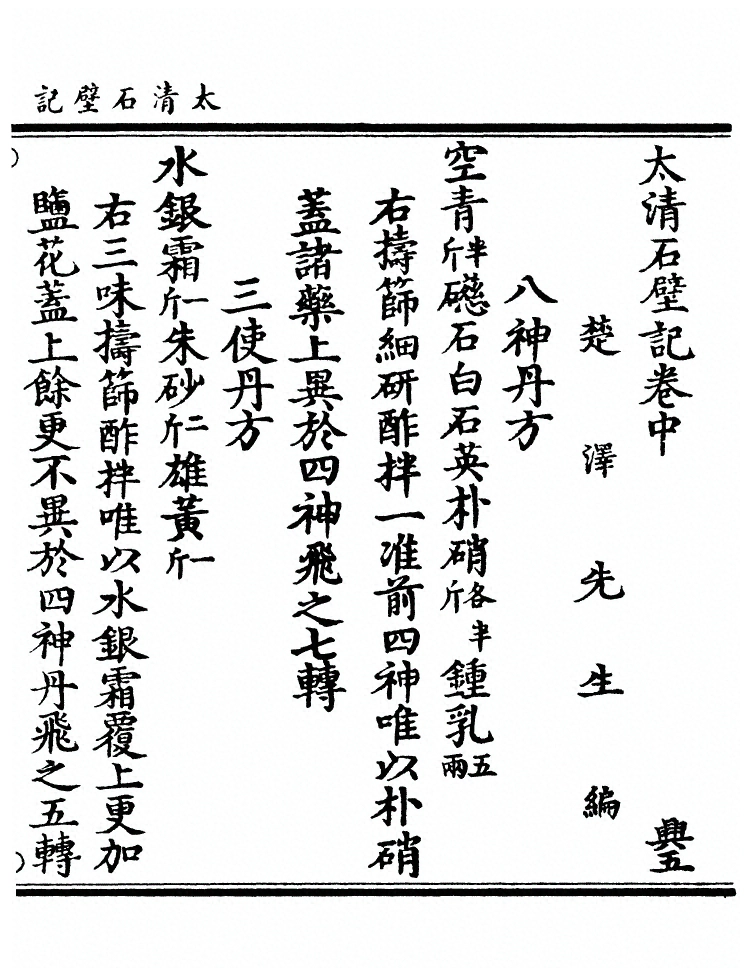 太清石壁記
太清石壁記卷中 興五
楚澤先生編
八神丹方
空青半斤礠石白石英朴硝各半斤鍾乳五兩
右擣篩細研酢拌一准前四神唯以朴硝
蓋諸藥上異於四神飛之七轉
三使丹方
水銀霜一斤朱砂二斤雄黃一斤
右三味擣篩酢拌唯以水銀霜覆上更加
鹽花蓋上餘更不異於四神丹飛之五轉